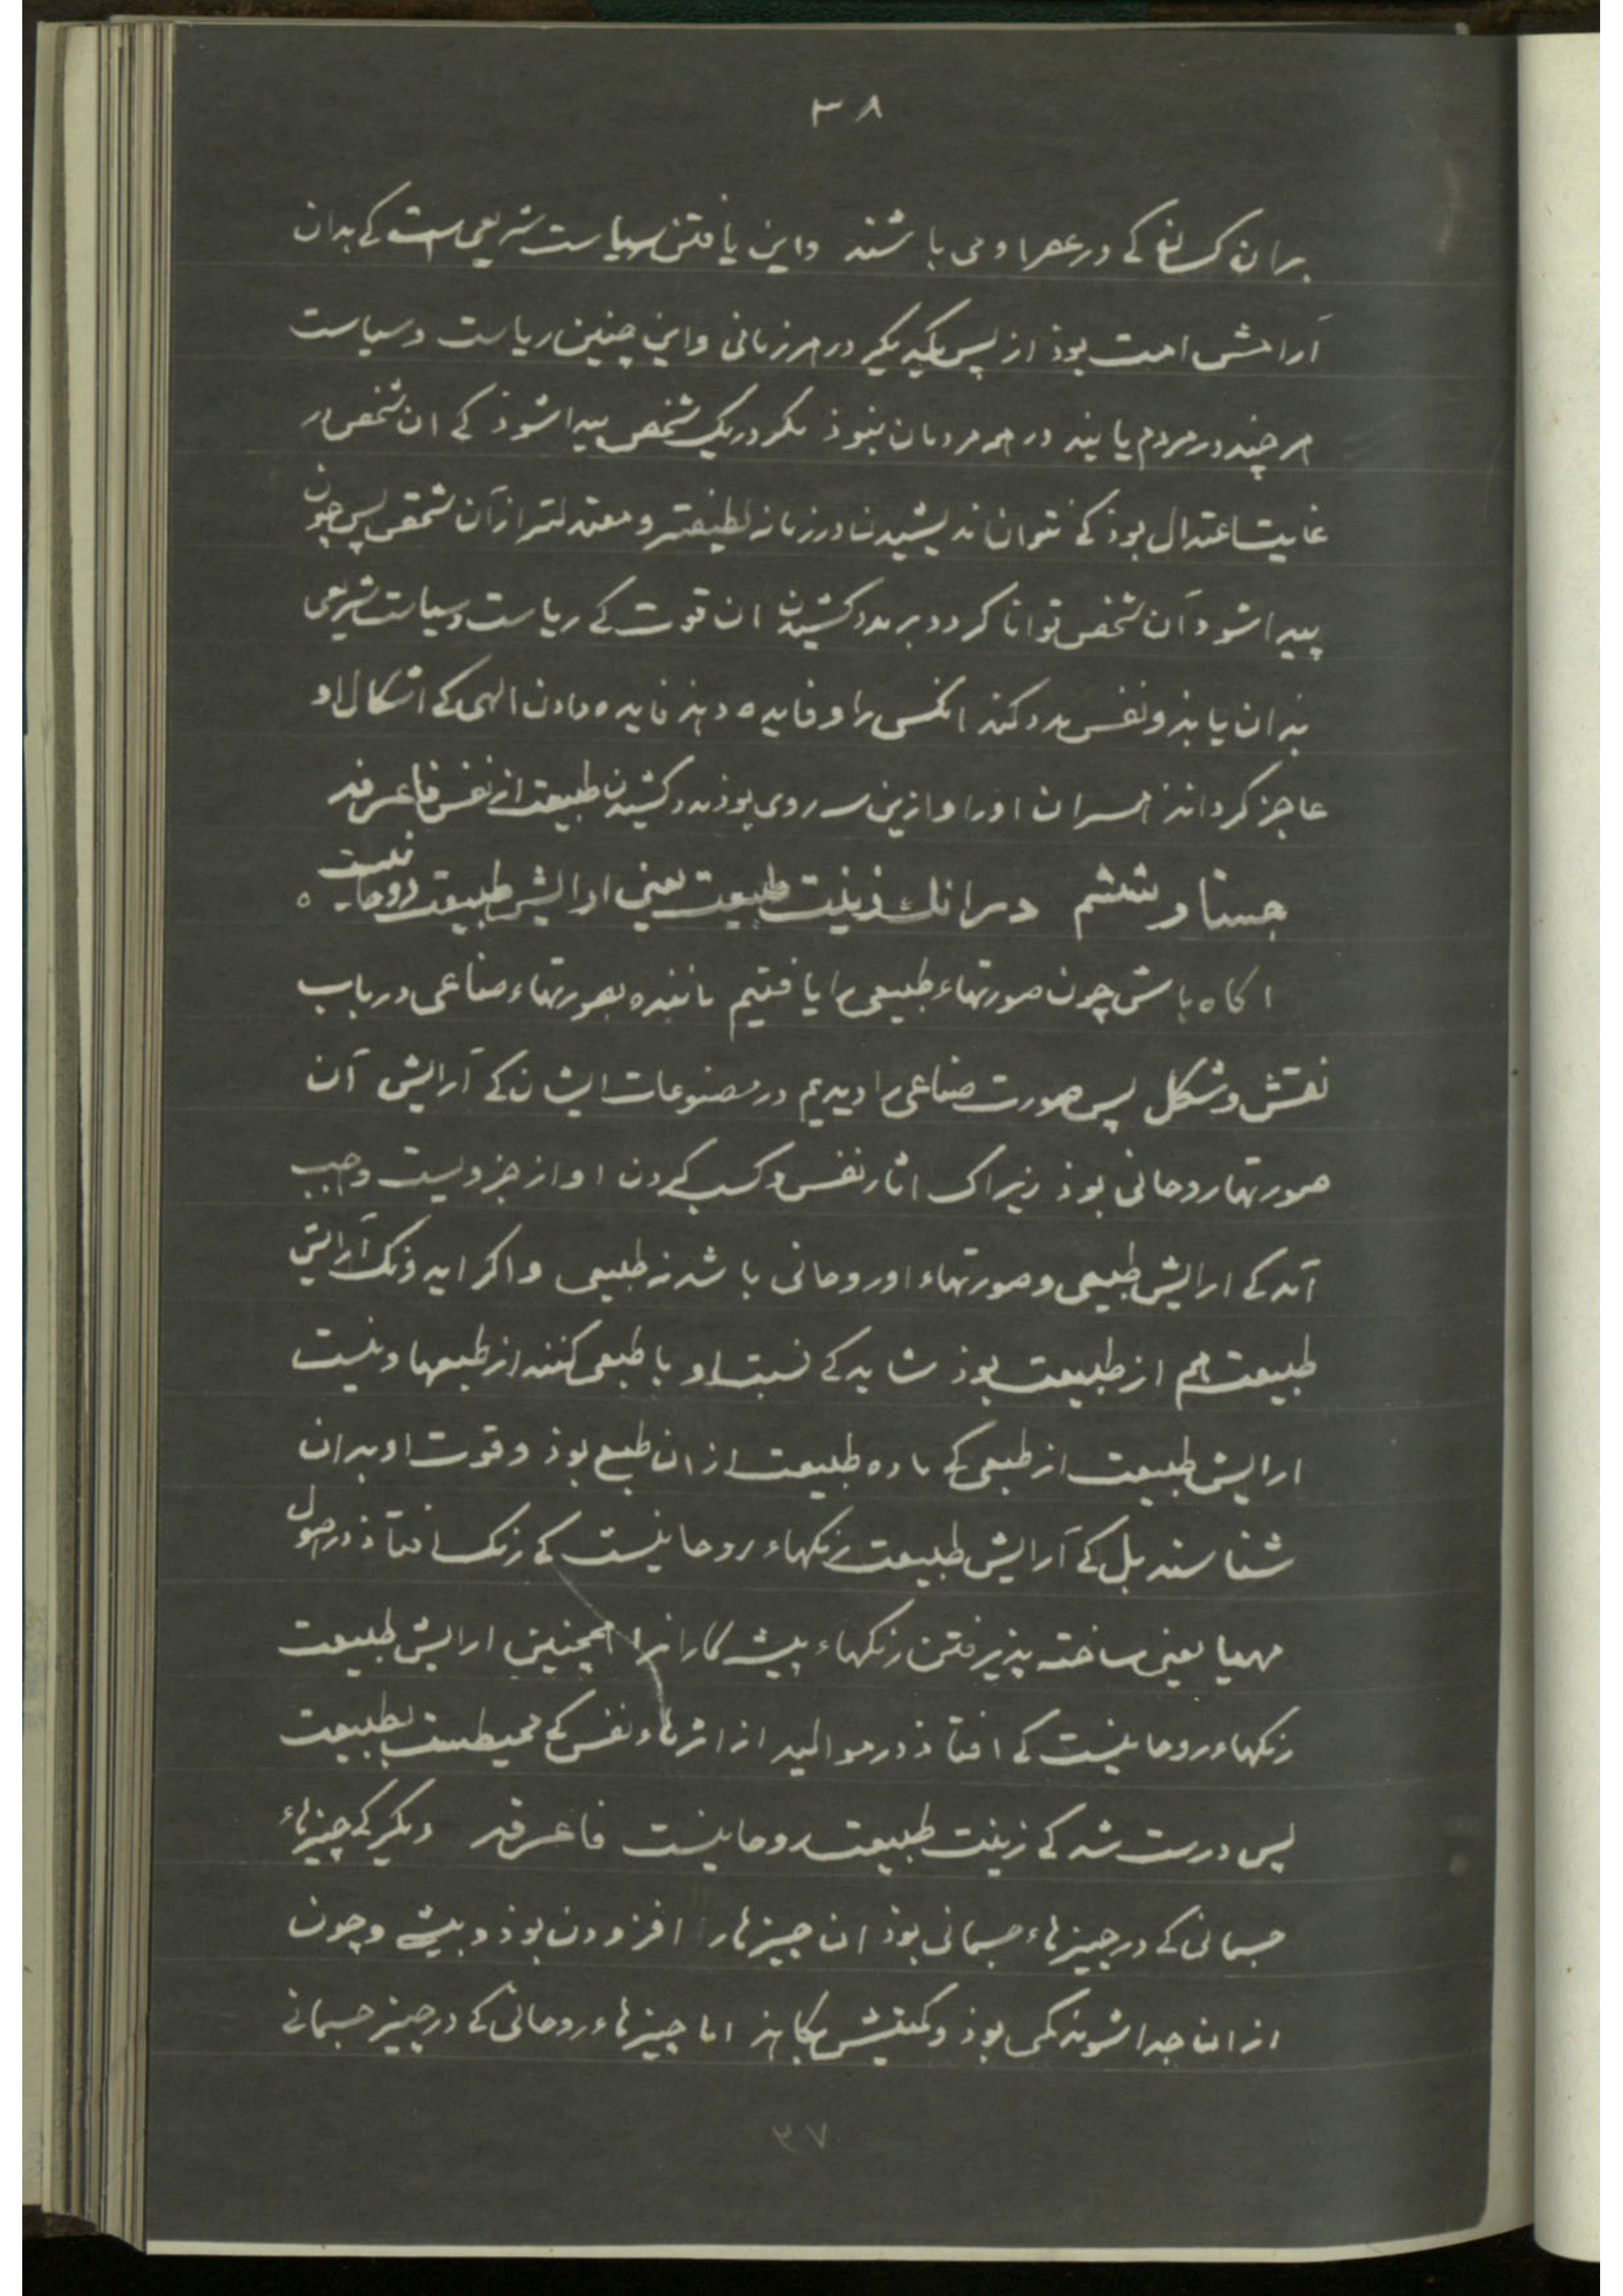 ۳۸
بران کسانی کے در عصر او می باشند واین یافتن سیاست شریعی است کے بدان
آرامش امت بوذ از پس یکدیگر در هر زمانی واین چنین ریاست وسیاست
هر چند در مردم یابند در همه مردمان نبوذ مکر در یک شخص پیدا شوذ کے ان شخص در
غایت اعتدال بوذ کے نتوان اندیشیدن در زمانه لطیفتر و معتدلتر از آن شخص پس چون
پیدا شود آن شخص توانا کردد بر مدد کشیدن ان قوت کے ریاست وسیاست شریعی
بدان یابند و نفس مدد کند انکس را و فایده دهد فایده دادن الهی کے اشکال او
عاجز کرداند همسران اورا و ازین سه روی بوذ مدد کشیدن طبیعت از نفس فاعرفه
جستار ششم در انک زینت طبیعت یعنی ارایش طبیعت روحانیست ه
اکاه باش چون صورتهاء طبیعی را یافتیم ماننده بصورتهاء صناعی در باب
نقش و شکل پس صورت صناعی را دیدیم در مصنوعات ایشان کے آرایش آن
صورتها روحانی بوذ زیراک اثار نفس وکسب کردن او از جزویست واجب
آمد کے ارایش طبیعی وصورتهاء او روحانی باشد نه طبیعی واکر ایدونک آرایش
طبیعت هم از طبیعت بوذ شاید کے نسبت او با طبعی کنند از طبعها ونیست
ارایش طبیعت از طبعی کے ماده طبیعت از ان طبع بوذ وقوت او بدان
شناسند بل کے آرایش طبیعت رنکهاء روحانیست کے رنک افتاذ در اصول
مهیا یعنی ساخته پذیرفتن رنکهاء پیشه کارانرا همچنین ارایش طبیعت
رنکهاء روحانیست کے افتاذ در موالید از اثرهاء نفس کے محیطست بطبیعت
پس درست شد کے زینت طبیعت روحانیست فاعرفه دیکر کے چیزهاء
جسمانی کے در چیزهاء جسمانی بوذ ان چیزها را افزودن بوذ و بیشے وچون
از ان جدا شوند کمی بوذ وکمیتش بکاهذ اما چیزهاء روحانی کے در چیز جسمانے